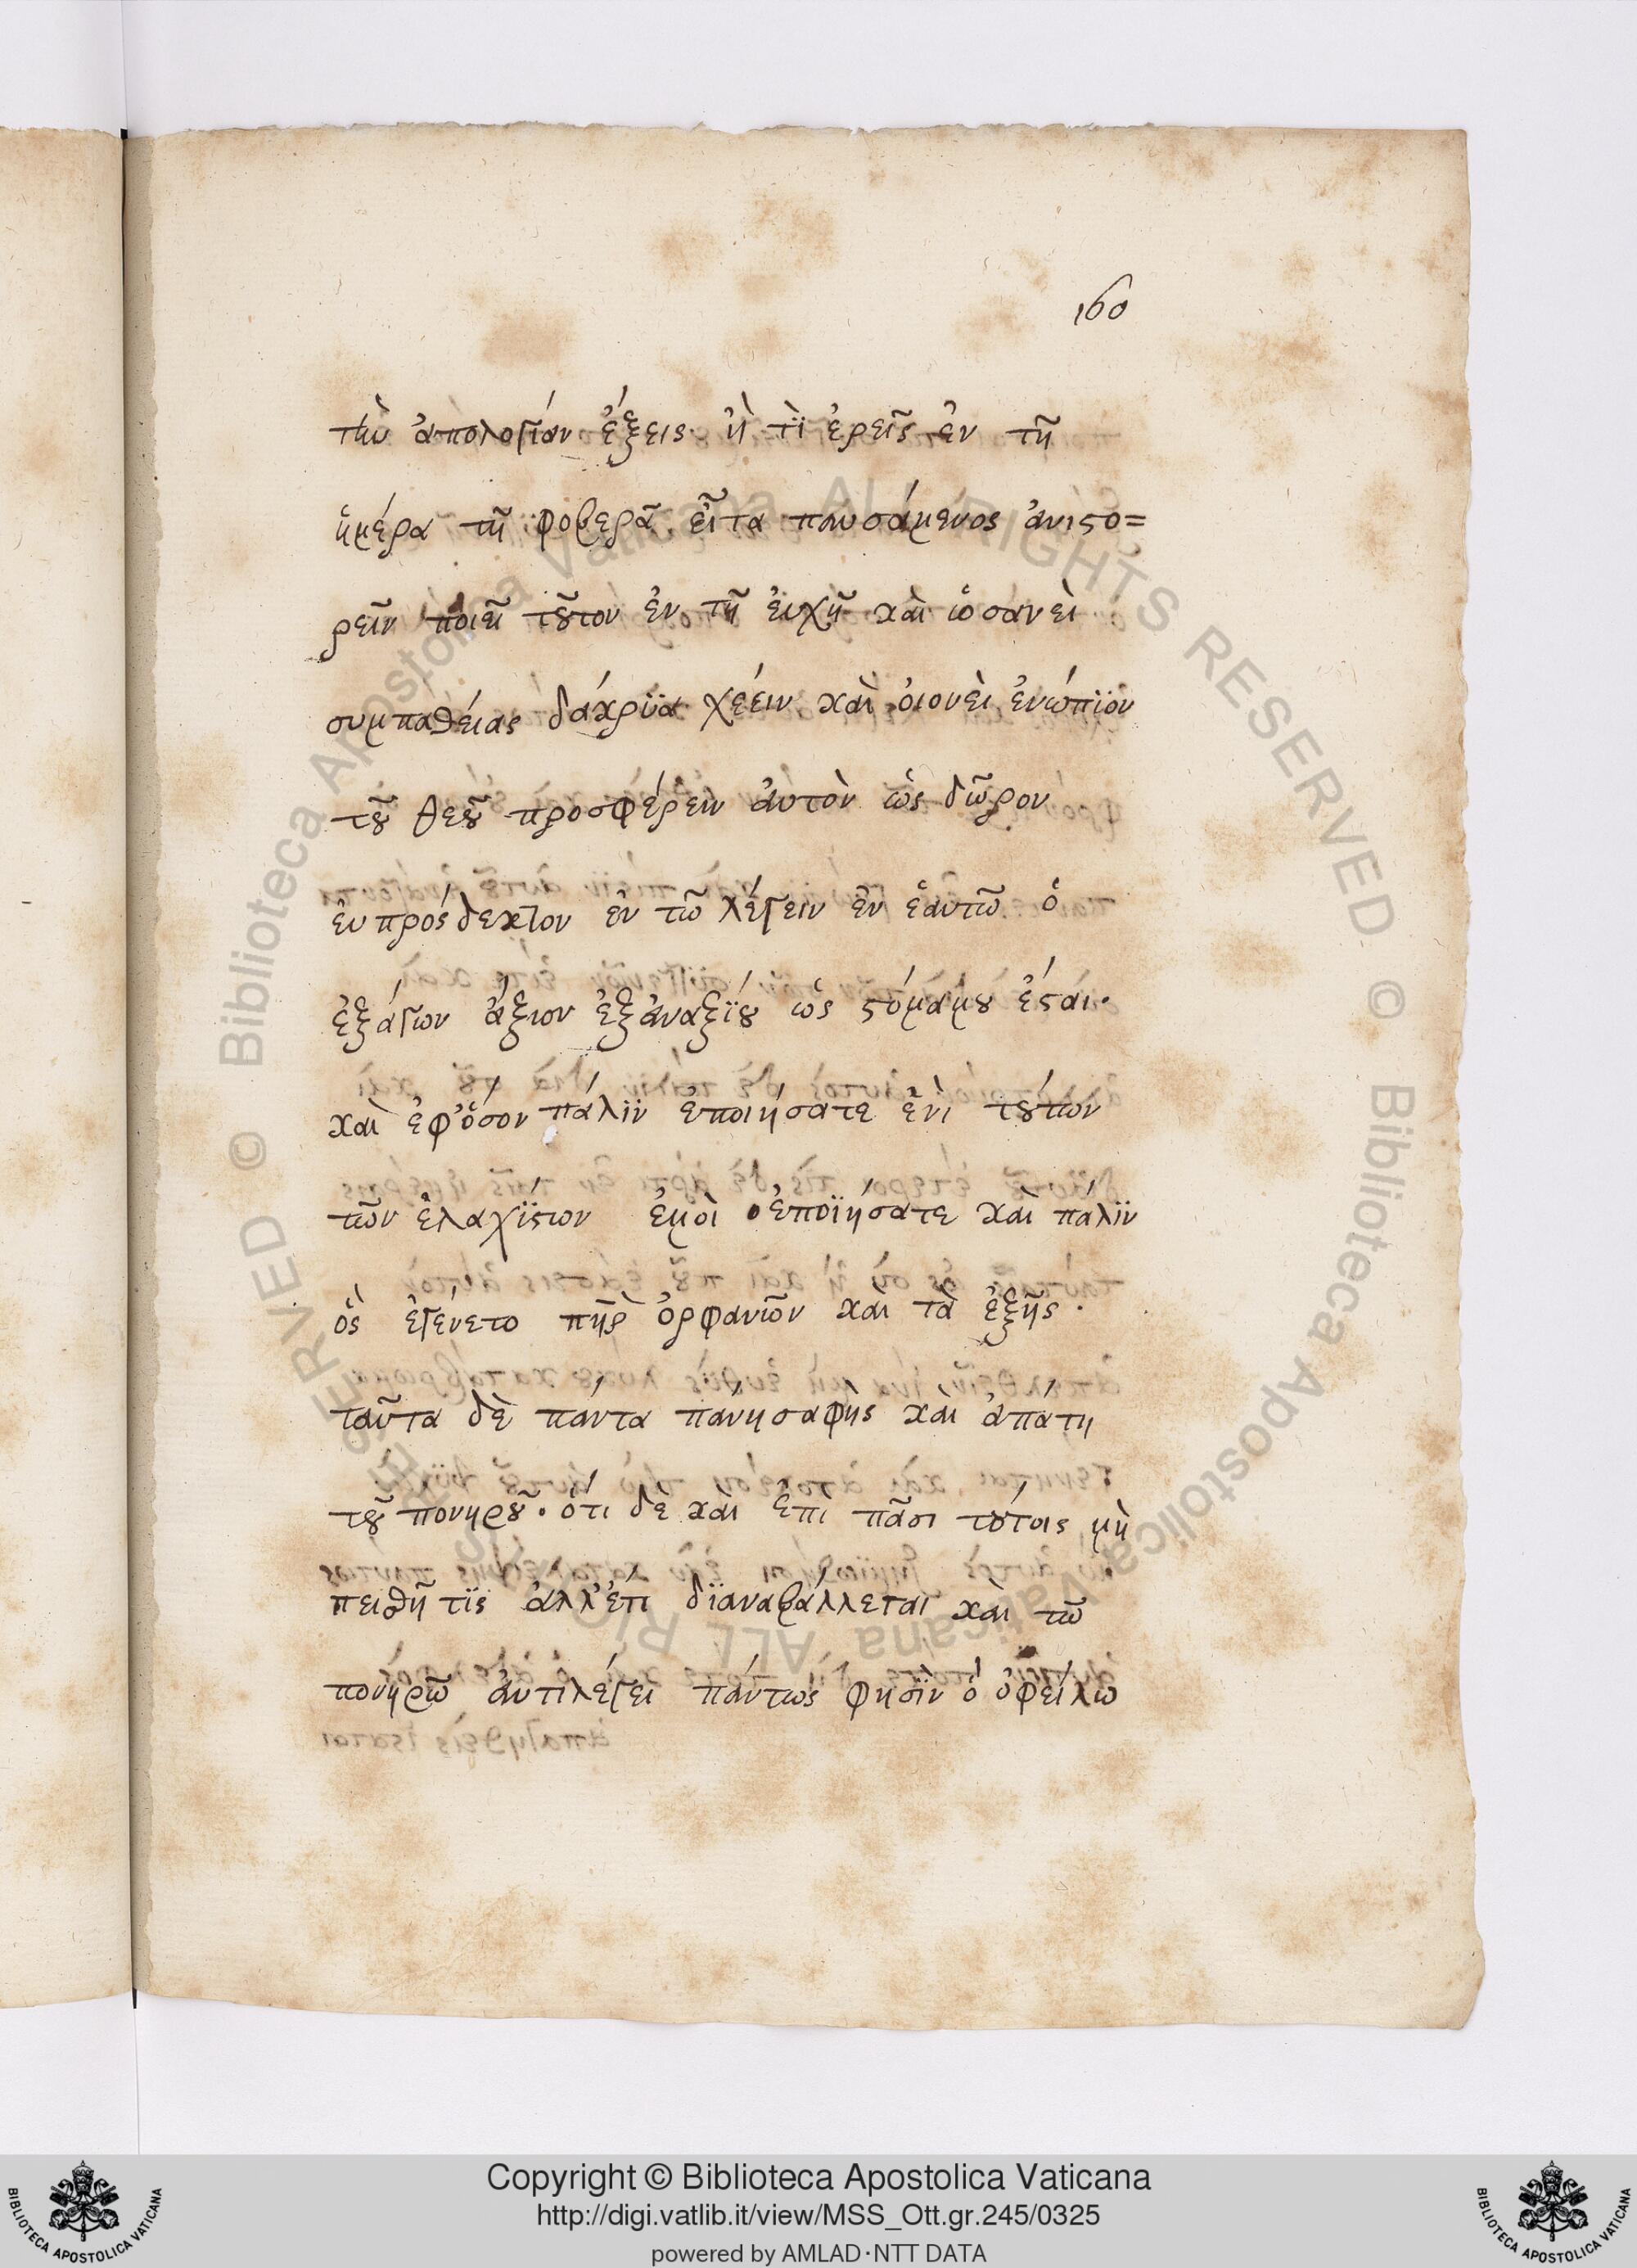 160
τὴν ἀπολογίαν ἕξεις· ἢ τὶ ἐρεῖς ἐν τῆ
ἡμέρα τῆ φοβερᾶ. εἶτα παυσάμενος ἀνιστο=
ρεῖν ποιεῖ τοῦτον ἐν τῆ εὐχῆ καὶ ὡσανεὶ
συμπαθείας δάκρϋα χέειν καὶ οἱονεὶ ἐνώπϊον
τοῦ θεοῦ προσφέρειν ἀυτὸν ὡς δῶρον
ἐυπρόσδεκτον ἐν τῶ λέγειν ἐν ἑαυτῶ ὁ
ἐξάγων ἄξιον ἐξἀναξΐου ὡς στόμαμου ἔσται·
καὶ ἐφ'ὅσον πάλϊν ἐποιήσατε ἑνὶ τούτων
τῶν ἐλαχΐστων ἐμοὶ ἐποϊήσατε καὶ πάλϊν
ὃς ἐγένετο πηρ ὀρφανῶν καὶ τὰ ἑξῆς·
ταῦτα δὲ πάντα πάνη σαφὴς καὶ ἀπάτη
τοῦ πονηροῦ· ὅτι δὲ καὶ ἐπὶ πᾶσι τούτοις μὴ
πεισθῆ τῒς ἀλλ'ἔτι δϊαναβάλλεται καὶ τῶ
πονηρῶ ἀντιλέγει πάντως φησῒν ὁ ὀφείλω
Copyright © Biblioteca Apostolica Vaticana
http://digi.vatlib.it/view/MSS_Ott.gr.245/0325
powered by AMLAD·NTT DATA
BIBLIOTECA APOSTOLICA VATICANA
BIBLIOTECA APOSTOLICA VATICANA
© Biblioteca Apostolica Vaticana ALL RIGHTS RESERVED
© Biblioteca Apostolica Vaticana ALL RIGHTS RESERVED